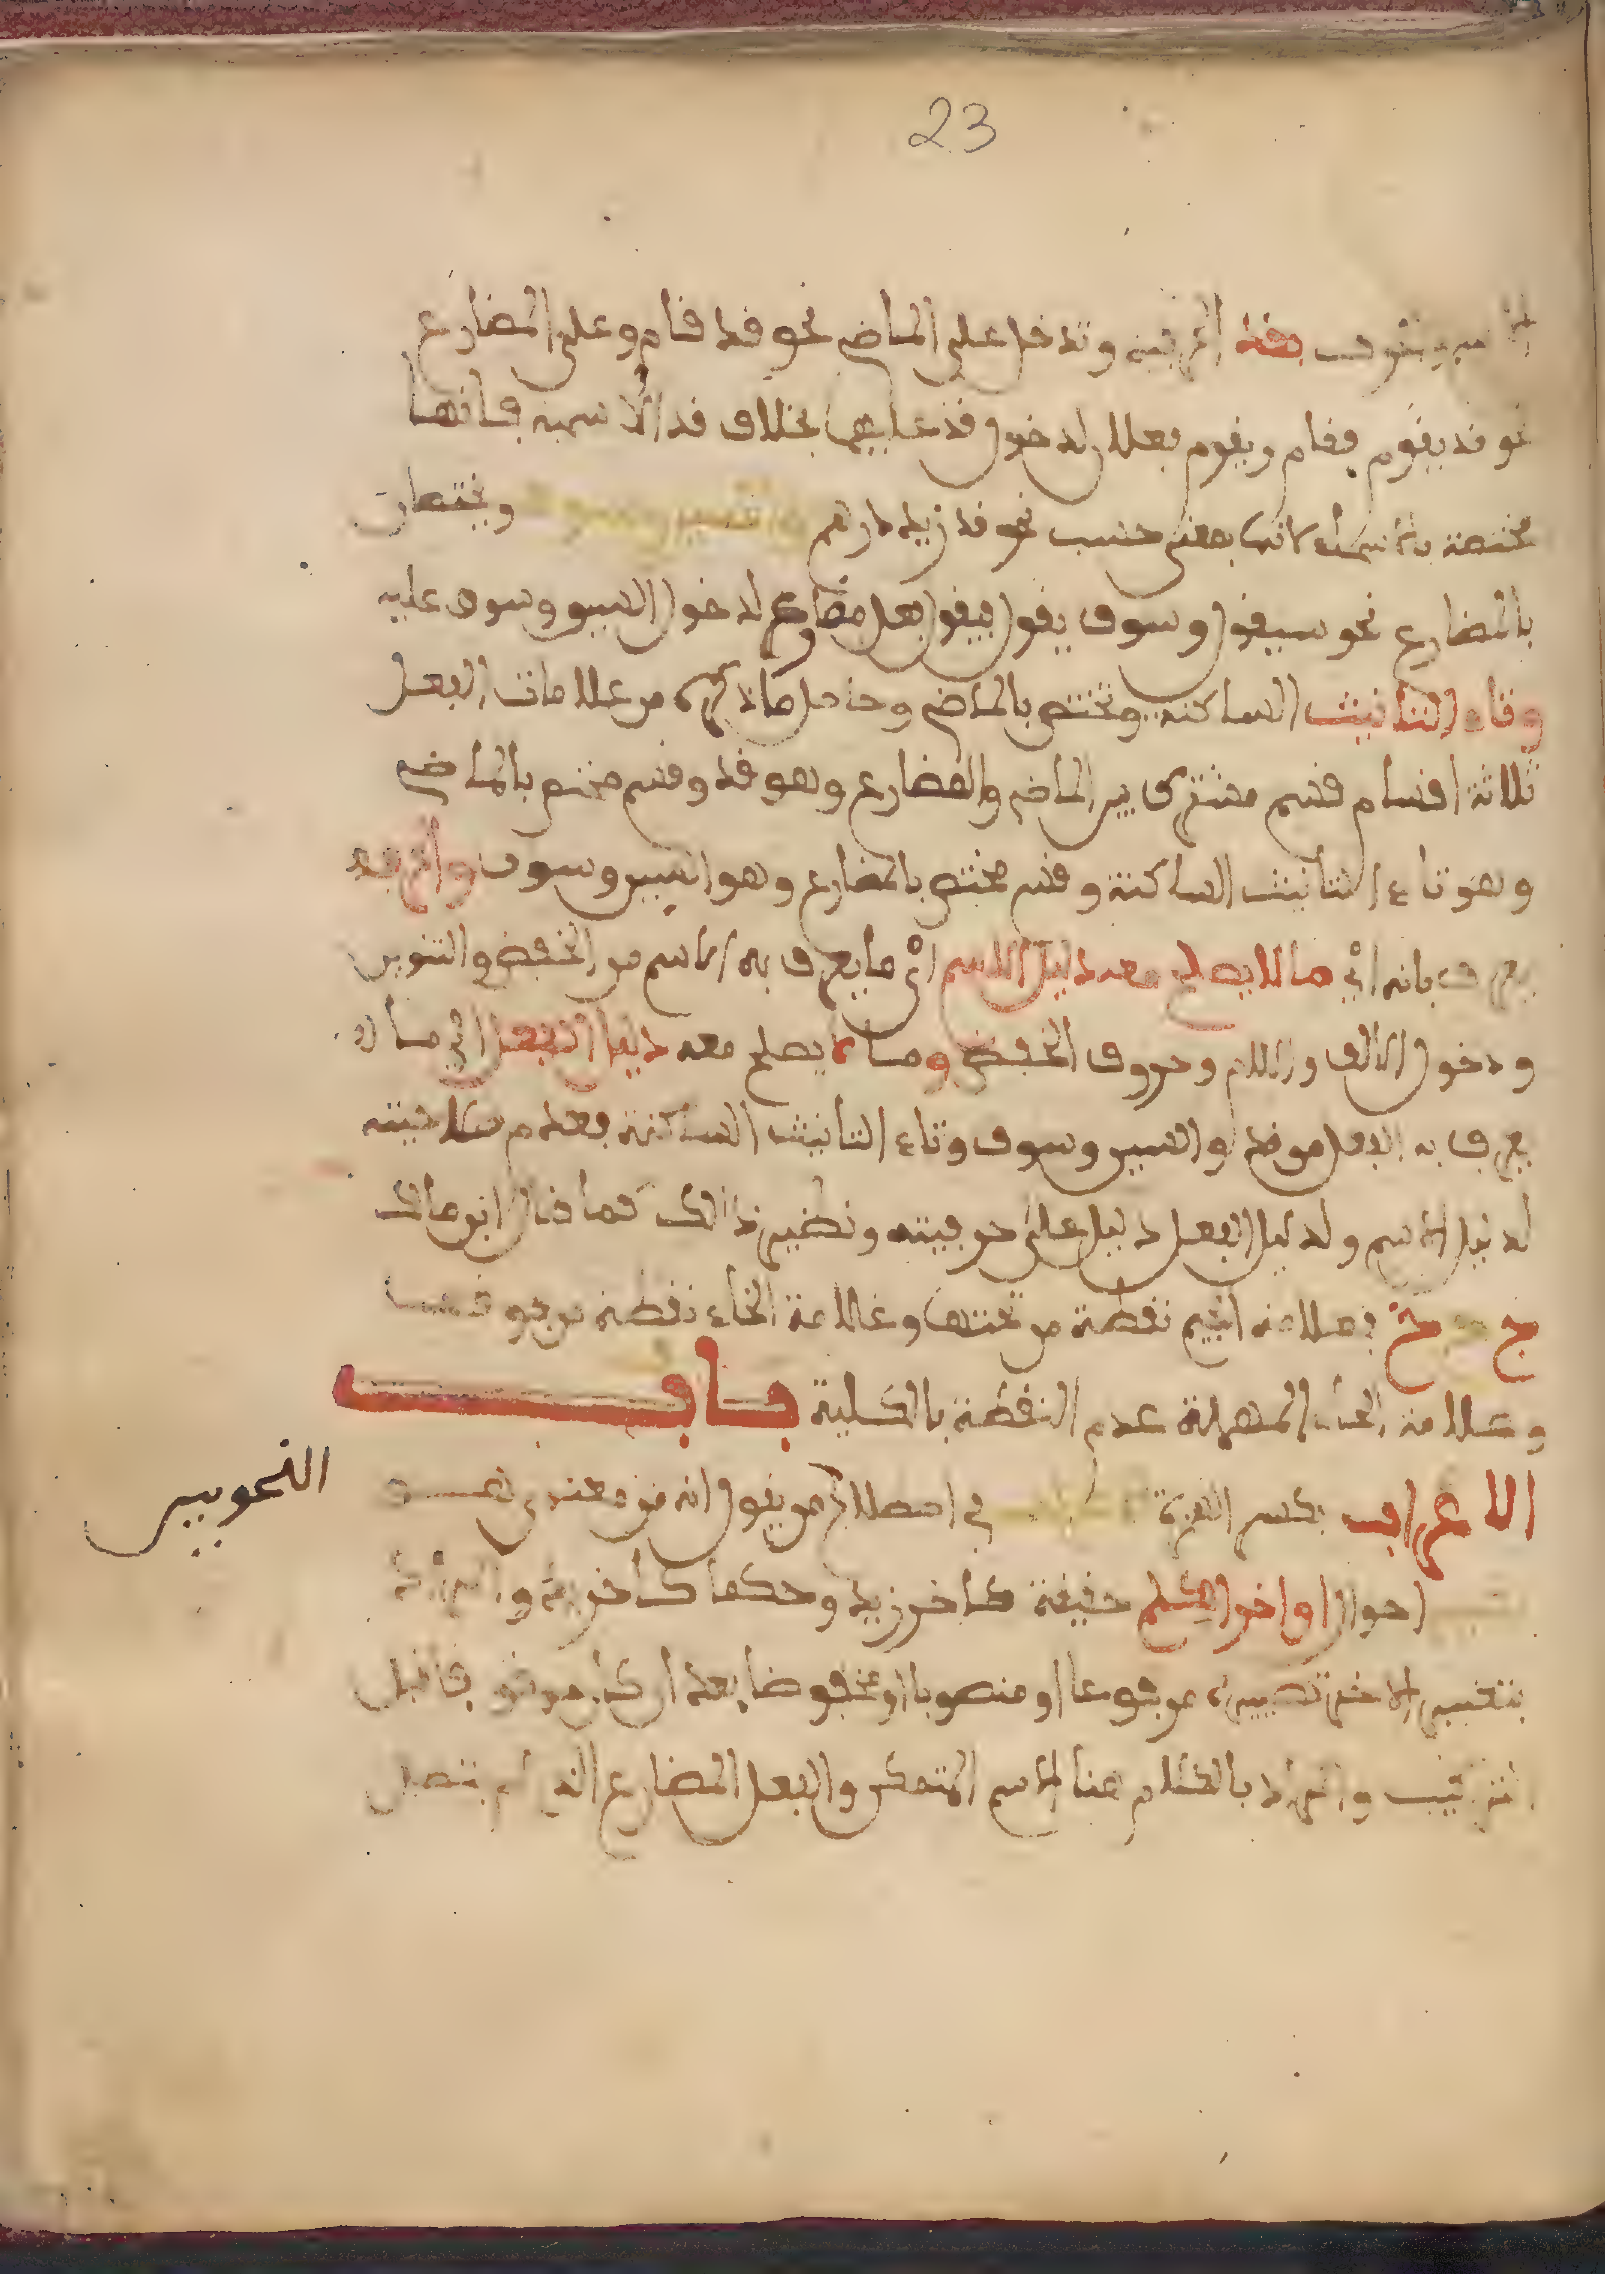 23
بقد الحرفية وتدخل على الماضي نحو قد قام وعلى المضارع
نحو قد يقوم فقام ويقوم فعلان لدخول قد عليهما بخلاف قد الاسمية فانها
مختصة بالاسماء لانها بمعنى حسب نحو قد زيد درهم والسين وسوف ويختصان
بالمضارع نحو سيقول وسوف يقول فيقول فعل مضارع لدخول السين وسوف عليه
وتاء التانيث الساكنة وتختص بالماضي وحاصل ما ذكره من علامات الفعل
ثلاثة اقسام قسم مشترك بين الماضي والمضارع وهو قد وقسم مختص بالماضي
وهو تاء التانيث الساكنة وقسم مختص بالمضارع وهو السين وسوف والحرف
يعرف بانه اي ما لا يصلح معه دليل الاسم اي ما يعرف به الاسم من الخفض والتنوين
ودخول الالف واللام وحروف الخفض وما لا يصلح معه دليل الفعل اي ما
يعرف به الفعل من قد والسين وسوف وتاء التانيث الساكنة فعدم صلاحيته
لدليل الاسم ولدليل الفعل دليل على حرفيته ونظير ذالك كما قال ابن مالك
ج ح خ فعلامة الجيم نقطة من تحتها وعلامة الخاء نقطة من فوقها
وعلامة الحاء المهملة عدم النقطة بالكلية باب
الاعراب بكسر الهمزة في اصطلاح من يقول انه معنوي
النحويين
احوال اواخر الكلم حقيقة كاخر زيد وحكما كاخر يد والمراد
بتغيير الاخر تصييره مرفوعا او منصوبا او مخفوضا بعد ان كان موقوفا قبل
التركيب والمراد بالكلم هنا الاسم المتمكن والفعل المضارع الذي لم يتصل